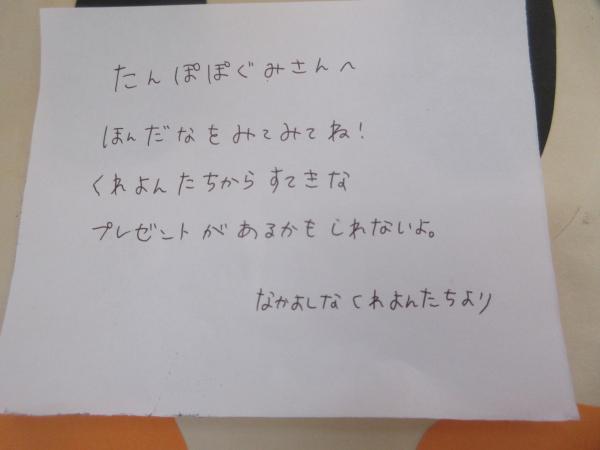 たんぽぽぐみさんへ
ほんだなをみてみてね!
くれよんたちからすてきな
プレゼントがあるかもしれないよ。
なかよしなくれよんたちより